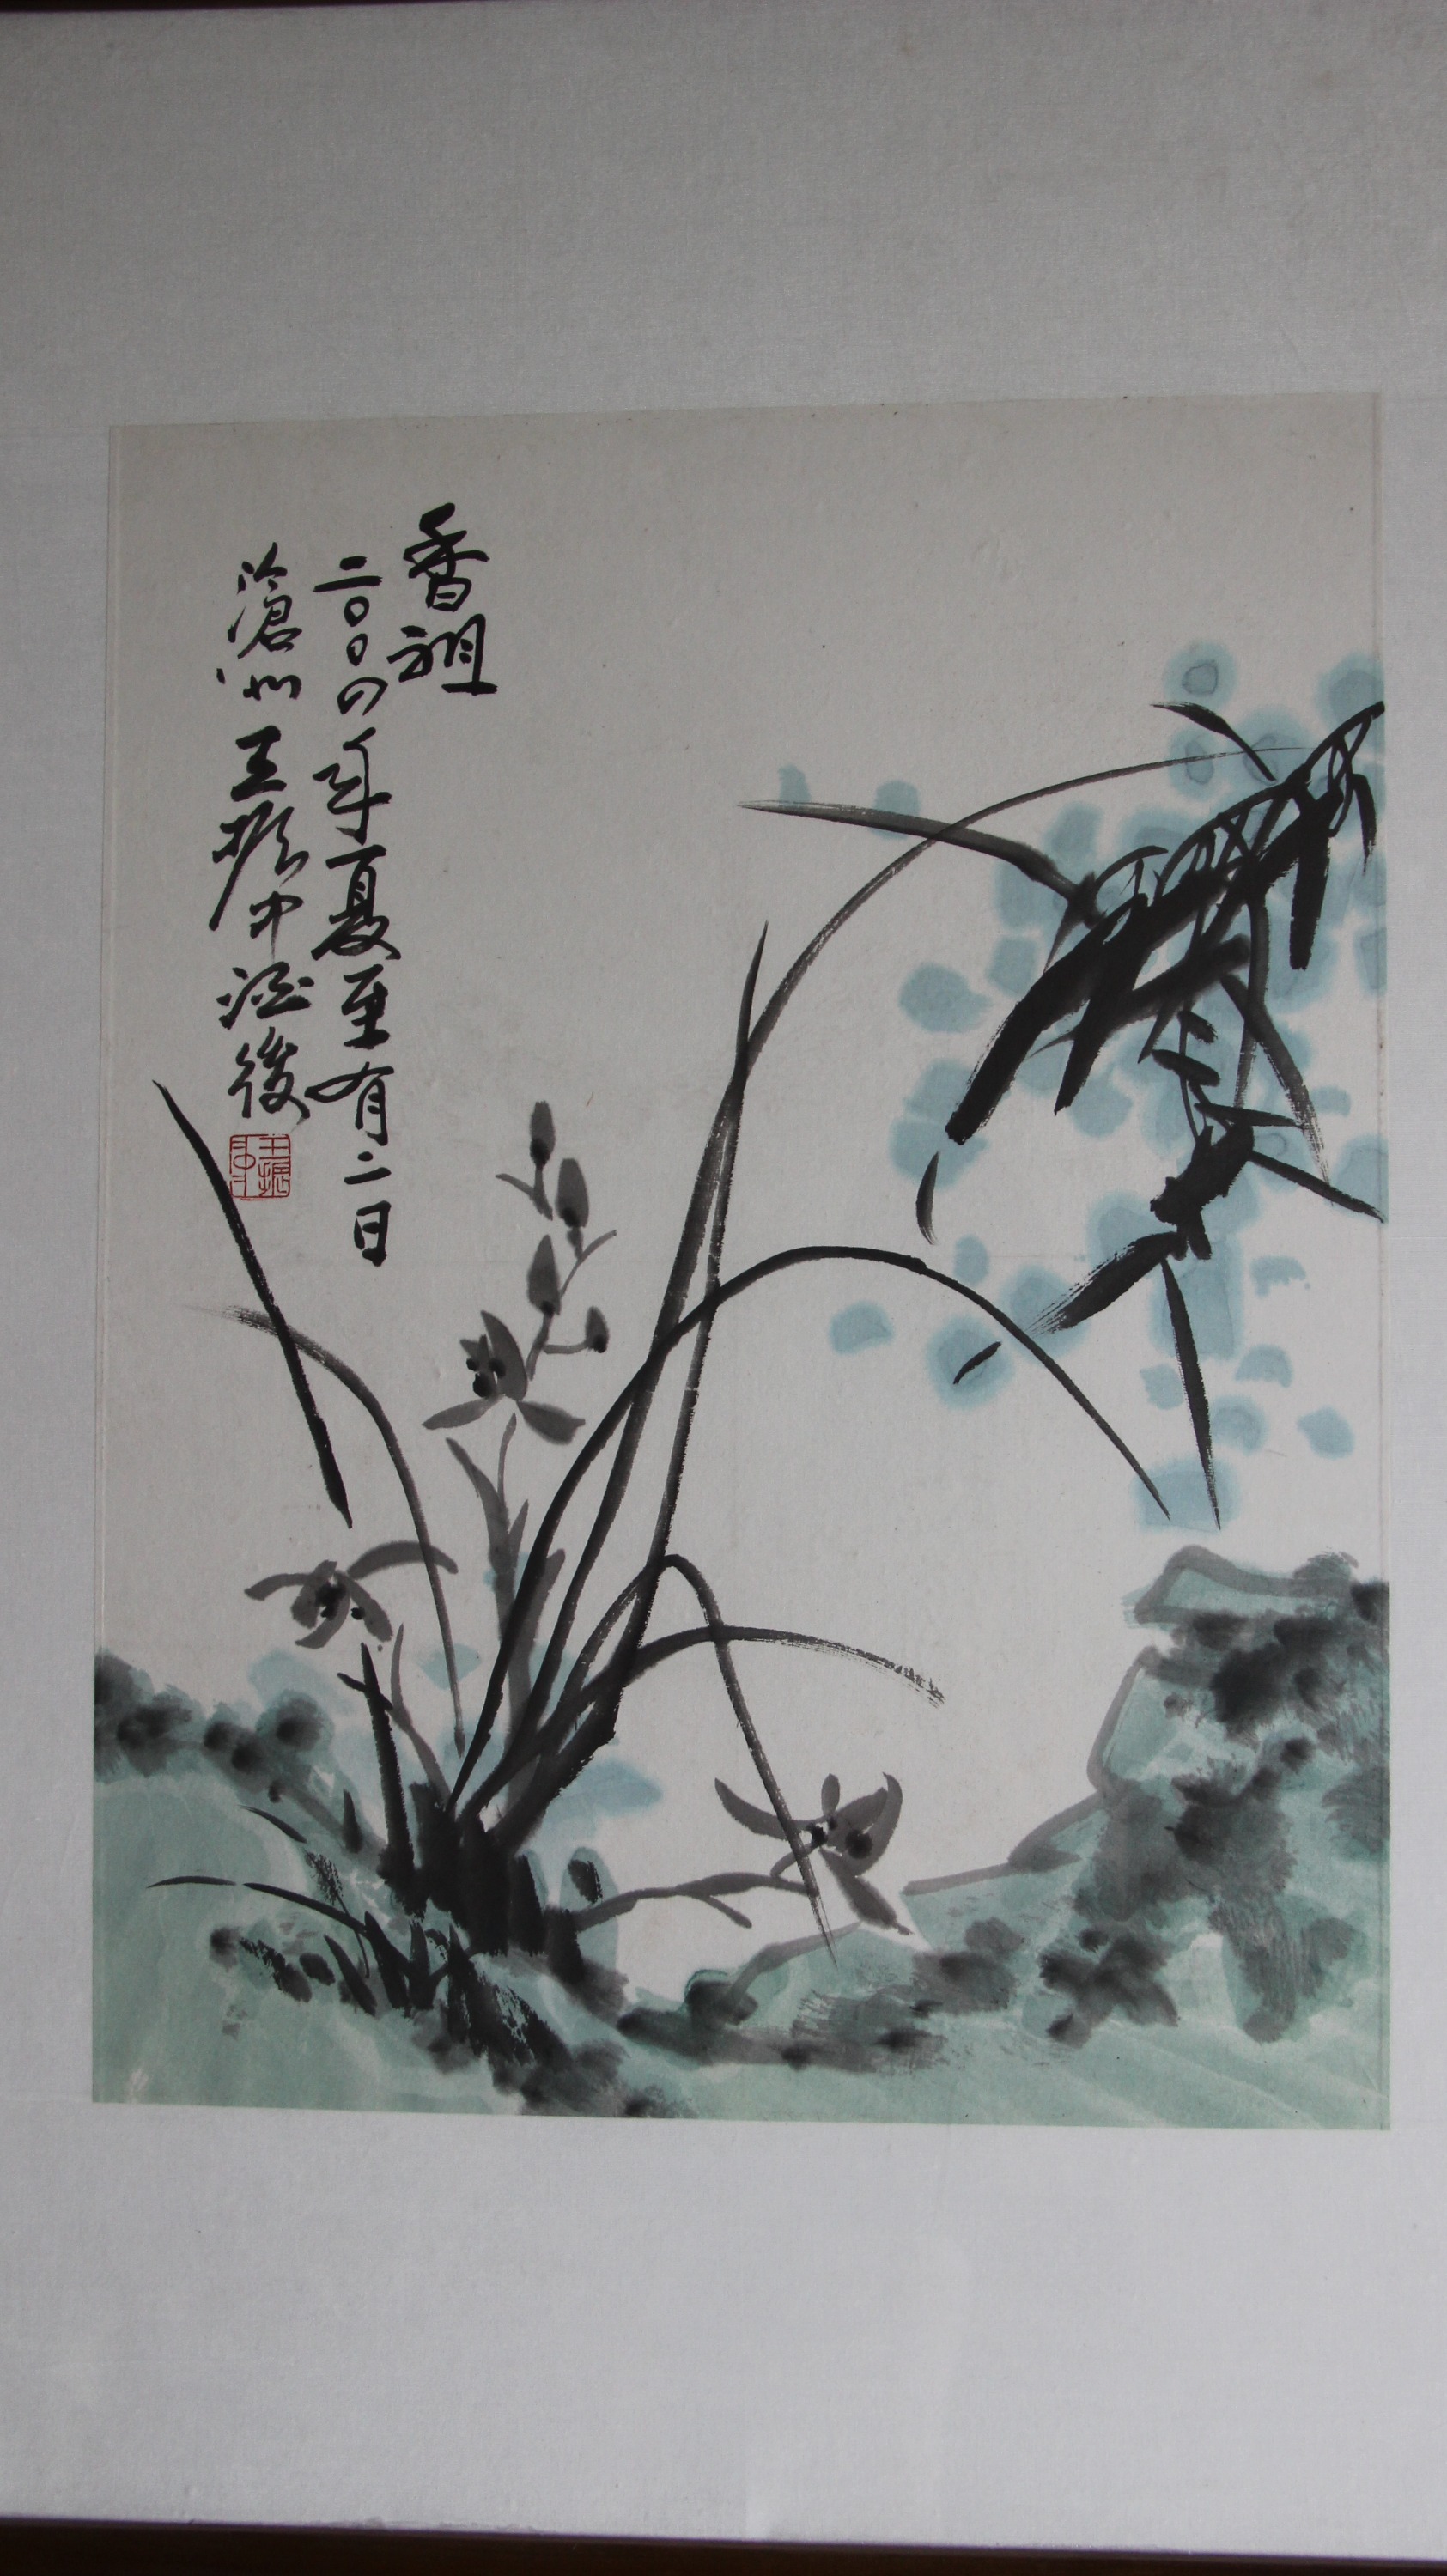 香祖
二〇〇四年夏至有二日
滄州王振中酒後